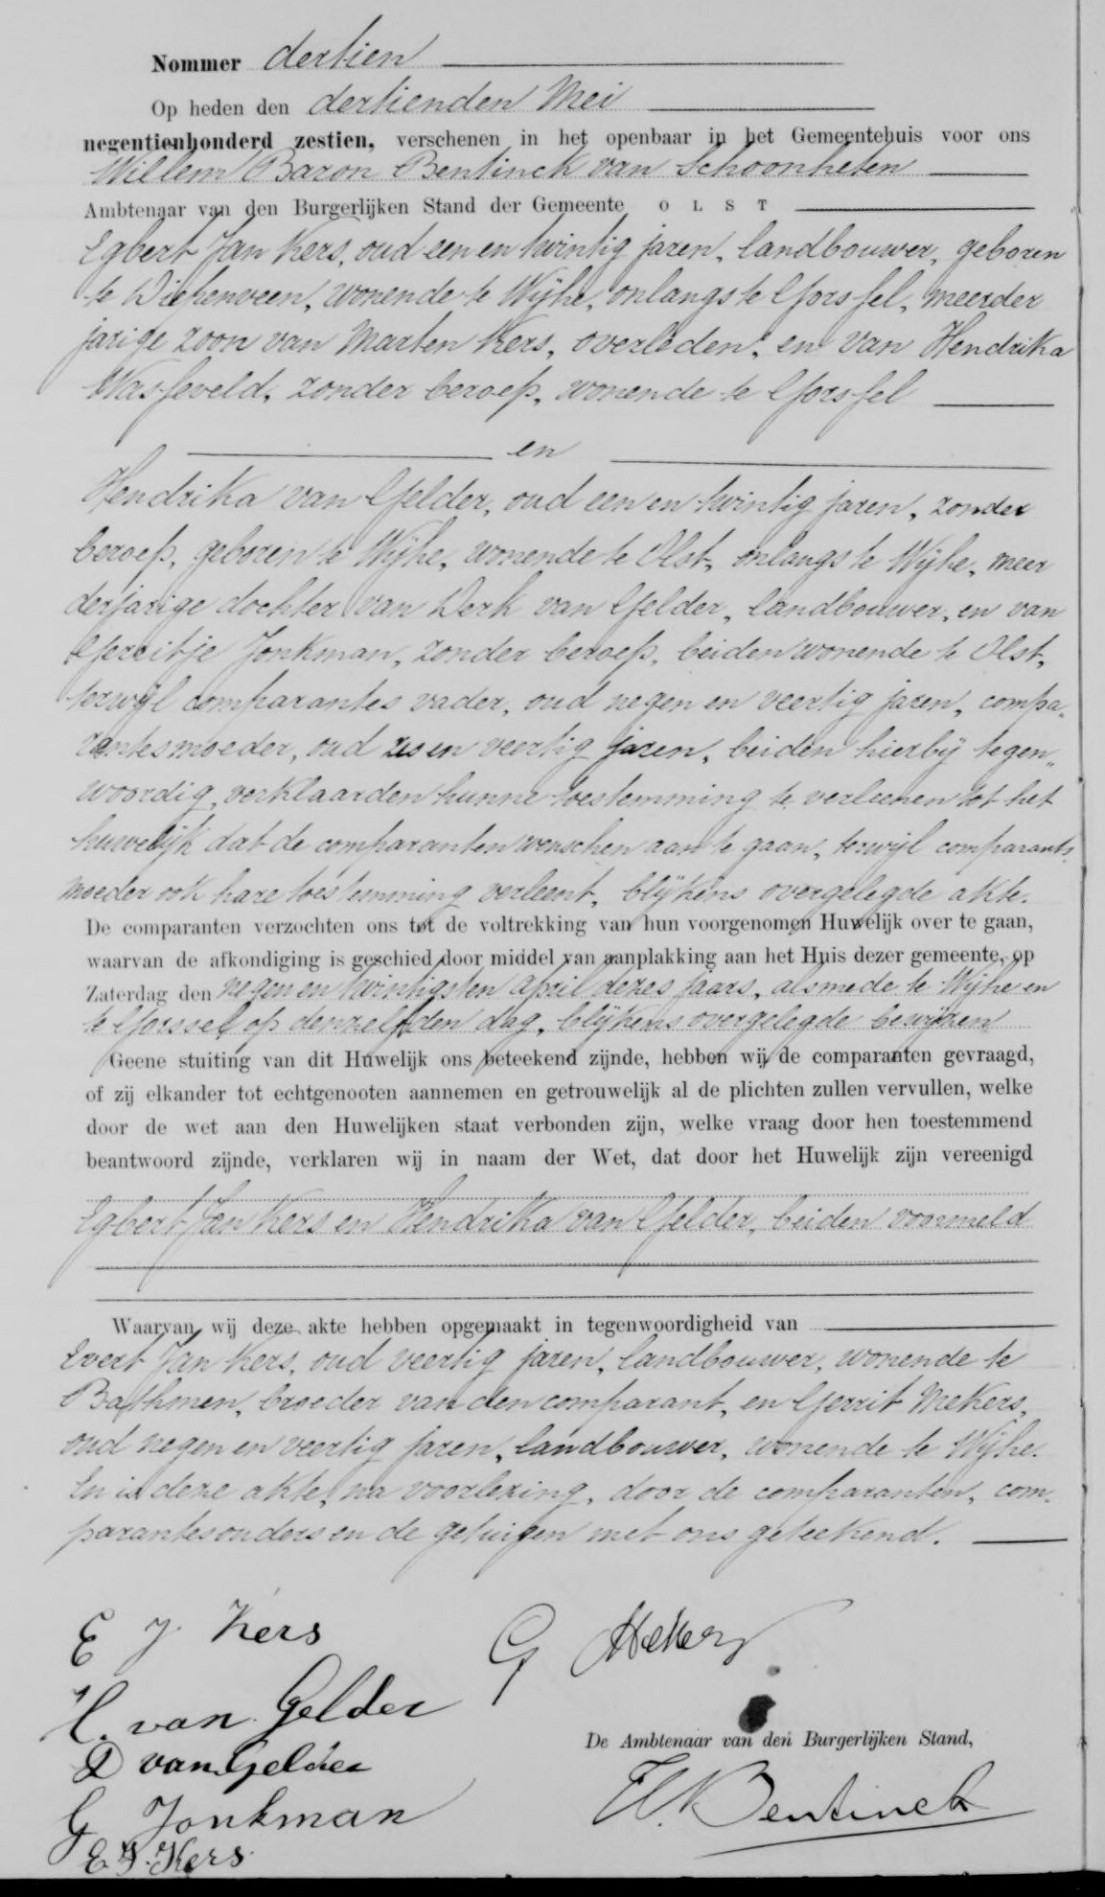 Nommer dertien
Op heden den dertienden Mei
negentienhonderd zestien, verschenen in het openbaar in het Gemeentehuis voor ons
Willem Baron Bentinck van Schoonheten
Ambtenaar van den Burgerlijken Stand der Gemeente OLST
Egbert Jan Kers, oud een en twintig jaren, landbouwer, geboren
te Diepenveen, wonende te Wijhe, onlangs te Gorssel, meerder
jarige zoon van Marten Kers, overleden, en van Hendrika
Wasseveld, zonder beroep, wonende te Gorssel
en
Hendrika van Gelder, oud een en twintig jaren, zonder
beroep, geboren te Wijhe, wonende te Olst, onlangs te Wijhe, meer
derjarige dochter van Derk van Gelder, landbouwer, en van
Gerritje Jonkman, zonder beroep, beiden wonende te Olst,
terwijl comparantes vader, oud negen en veertig jaren, compa„
rantes moeder, oud zes en veertig jaren, beiden hierbij tegen„
woordig, verklaarden hunne toestemming te verleenen tot het
huwelijk dat de comparanten wenschen aan te gaan, terwijl comparants
moeder ook hare toestemming verleent, blijkens overgelegde akte.
De comparanten verzochten ons tot de voltrekking van hun voorgenomen Huwelijk over te gaan,
waarvan de afkondiging is geschied door middel van aanplakking aan het Huis dezer gemeente, op
Zaterdag den negen en twintigsten April dezes jaars, alsmede te Wijhe en
te Gorssel op denzelfden dag, blijkens overgelegde bewijzen
Geene stuiting van dit Huwelijk ons beteekend zijnde, hebben wij de comparanten gevraagd,
of zij elkander tot echtgenooten aannemen en getrouwelijk al de plichten zullen vervullen, welke
door de wet aan den Huwelijken staat verbonden zijn, welke vraag door hen toestemmend
beantwoord zijnde, verklaren wij in naam der Wet, dat door het Huwelijk zijn vereenigd
Egbert Jan Kers en Hendrika van Gelder, beiden voormeld
Waarvan wij deze akte hebben opgemaakt in tegenwoordigheid van
Evert Jan Kers, oud veertig jaren, landbouwer, wonende te
Bathmen, broeder van den comparant, en Gerrit Mekers,
oud negen en veertig jaren, landbouwer, wonende te Wijhe.
En is deze akte, na voorlezing, door de comparanten, com„
parantes ouders en de getuigen met ons geteekend.
E J Kers
G Mekers
H. van Gelder
D van Gelder
De Ambtenaar van den Burgerlijken Stand,
G Jonkman
W. Bentinck
E. J. Kers